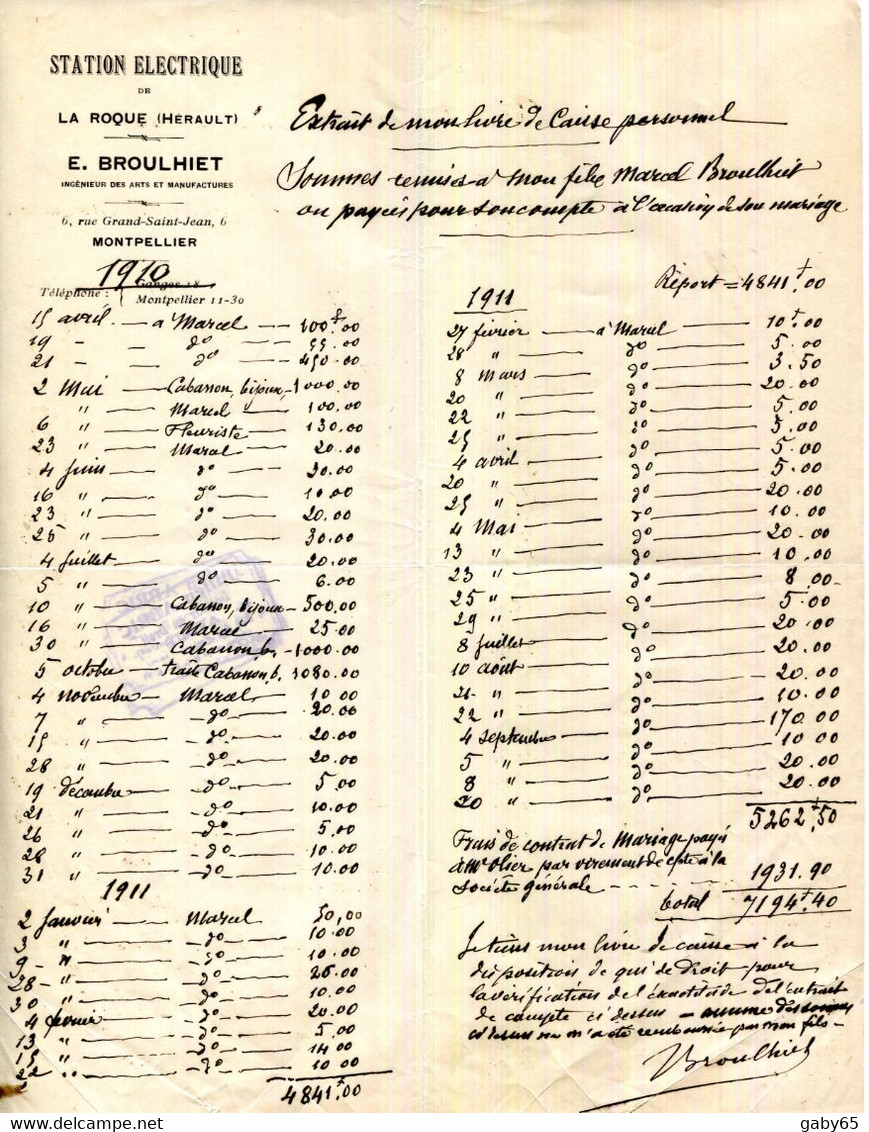 STATION ELECTRIQUE
DE
LA ROQUE (HÉRAULT)
E. BROULHIET
INGÉNIEUR DES ARTS ET MANUFACTURES
6, rue Grand-Saint-Jean, 6
MONTPELLIER
Téléphone : Ganges 18
Montpellier 11-30
Extrait de mon livre de Caisse personnel
Sommes remises à mon fils Marcel Broulhiet
ou payées pour son compte à l'occasion de son mariage
1910
15 avril — à Marcel — 100f.00
19 - — do — 55.00
21 - — do — 450.00
2 Mai — Cabasson, bijoux — 1000.00
" — Marcel — 100.00
6 " — Fleuriste — 130.00
23 " — Marcel — 20.00
4 Juin — do — 20.00
16 " — do — 10.00
23 " — do — 20.00
25 " — do — 30.00
4 Juillet — do — 20.00
5 " — do — 6.00
10 " — Cabasson, bijoux — 500.00
16 " — Marcel — 25.00
30 " — Cabasson, b. — 1000.00
5 octobre — traite Cabasson, b. 1080.00
4 novembre — Marcel — 10.00
7 " — do — 20.00
15 " — do — 20.00
28 " — do — 20.00
19 décembre — do — 5.00
21 " — do — 10.00
26 " — do — 5.00
28 " — do — 10.00
31 " — do — 10.00
1911
2 Janvier — Marcel — 50,00
3 " — do — 10.00
9 - " — do — 10.00
28 - " — do — 25.00
30 " — do — 10.00
4 février — do — 20.00
13 " — do — 5.00
15 " — do — 14.00
22 " — do — 10.00
4841f.00
Report = 4841f.00
1911
27 février — à Marcel — 10f.00
28 " — do — 5.00
8 Mars — do — 3.50
20 " — do — 20.00
22 " — do — 5.00
25 " — do — 5.00
4 avril — do — 5.00
20 " — do — 5.00
25 " — do — 20.00
4 Mai — do — 10.00
13 " — do — 20.00
23 " — do — 10.00
25 " — do — 8.00
29 " — do — 5.00
8 Juillet — do — 20.00
10 août — do — 20.00
21 " — do — 20.00
22 " — do — 10.00
4 septembre — do — 170.00
5 " — do — 10.00
8 " — do — 20.00
20 " — do — 20.00
5262f.50
Frais de contrat de Mariage payés
à Me Olier par virement de cpte à la
Société générale — 1931.90
total 7194f.40
Je tiens mon livre de caisse à la
disposition de qui de droit pour
la vérification de l'exactitude de l'extrait
de compte ci dessus — aucune des sommes
ci dessus ne m'a été remboursée par mon fils —
Broulhiet
gaby65